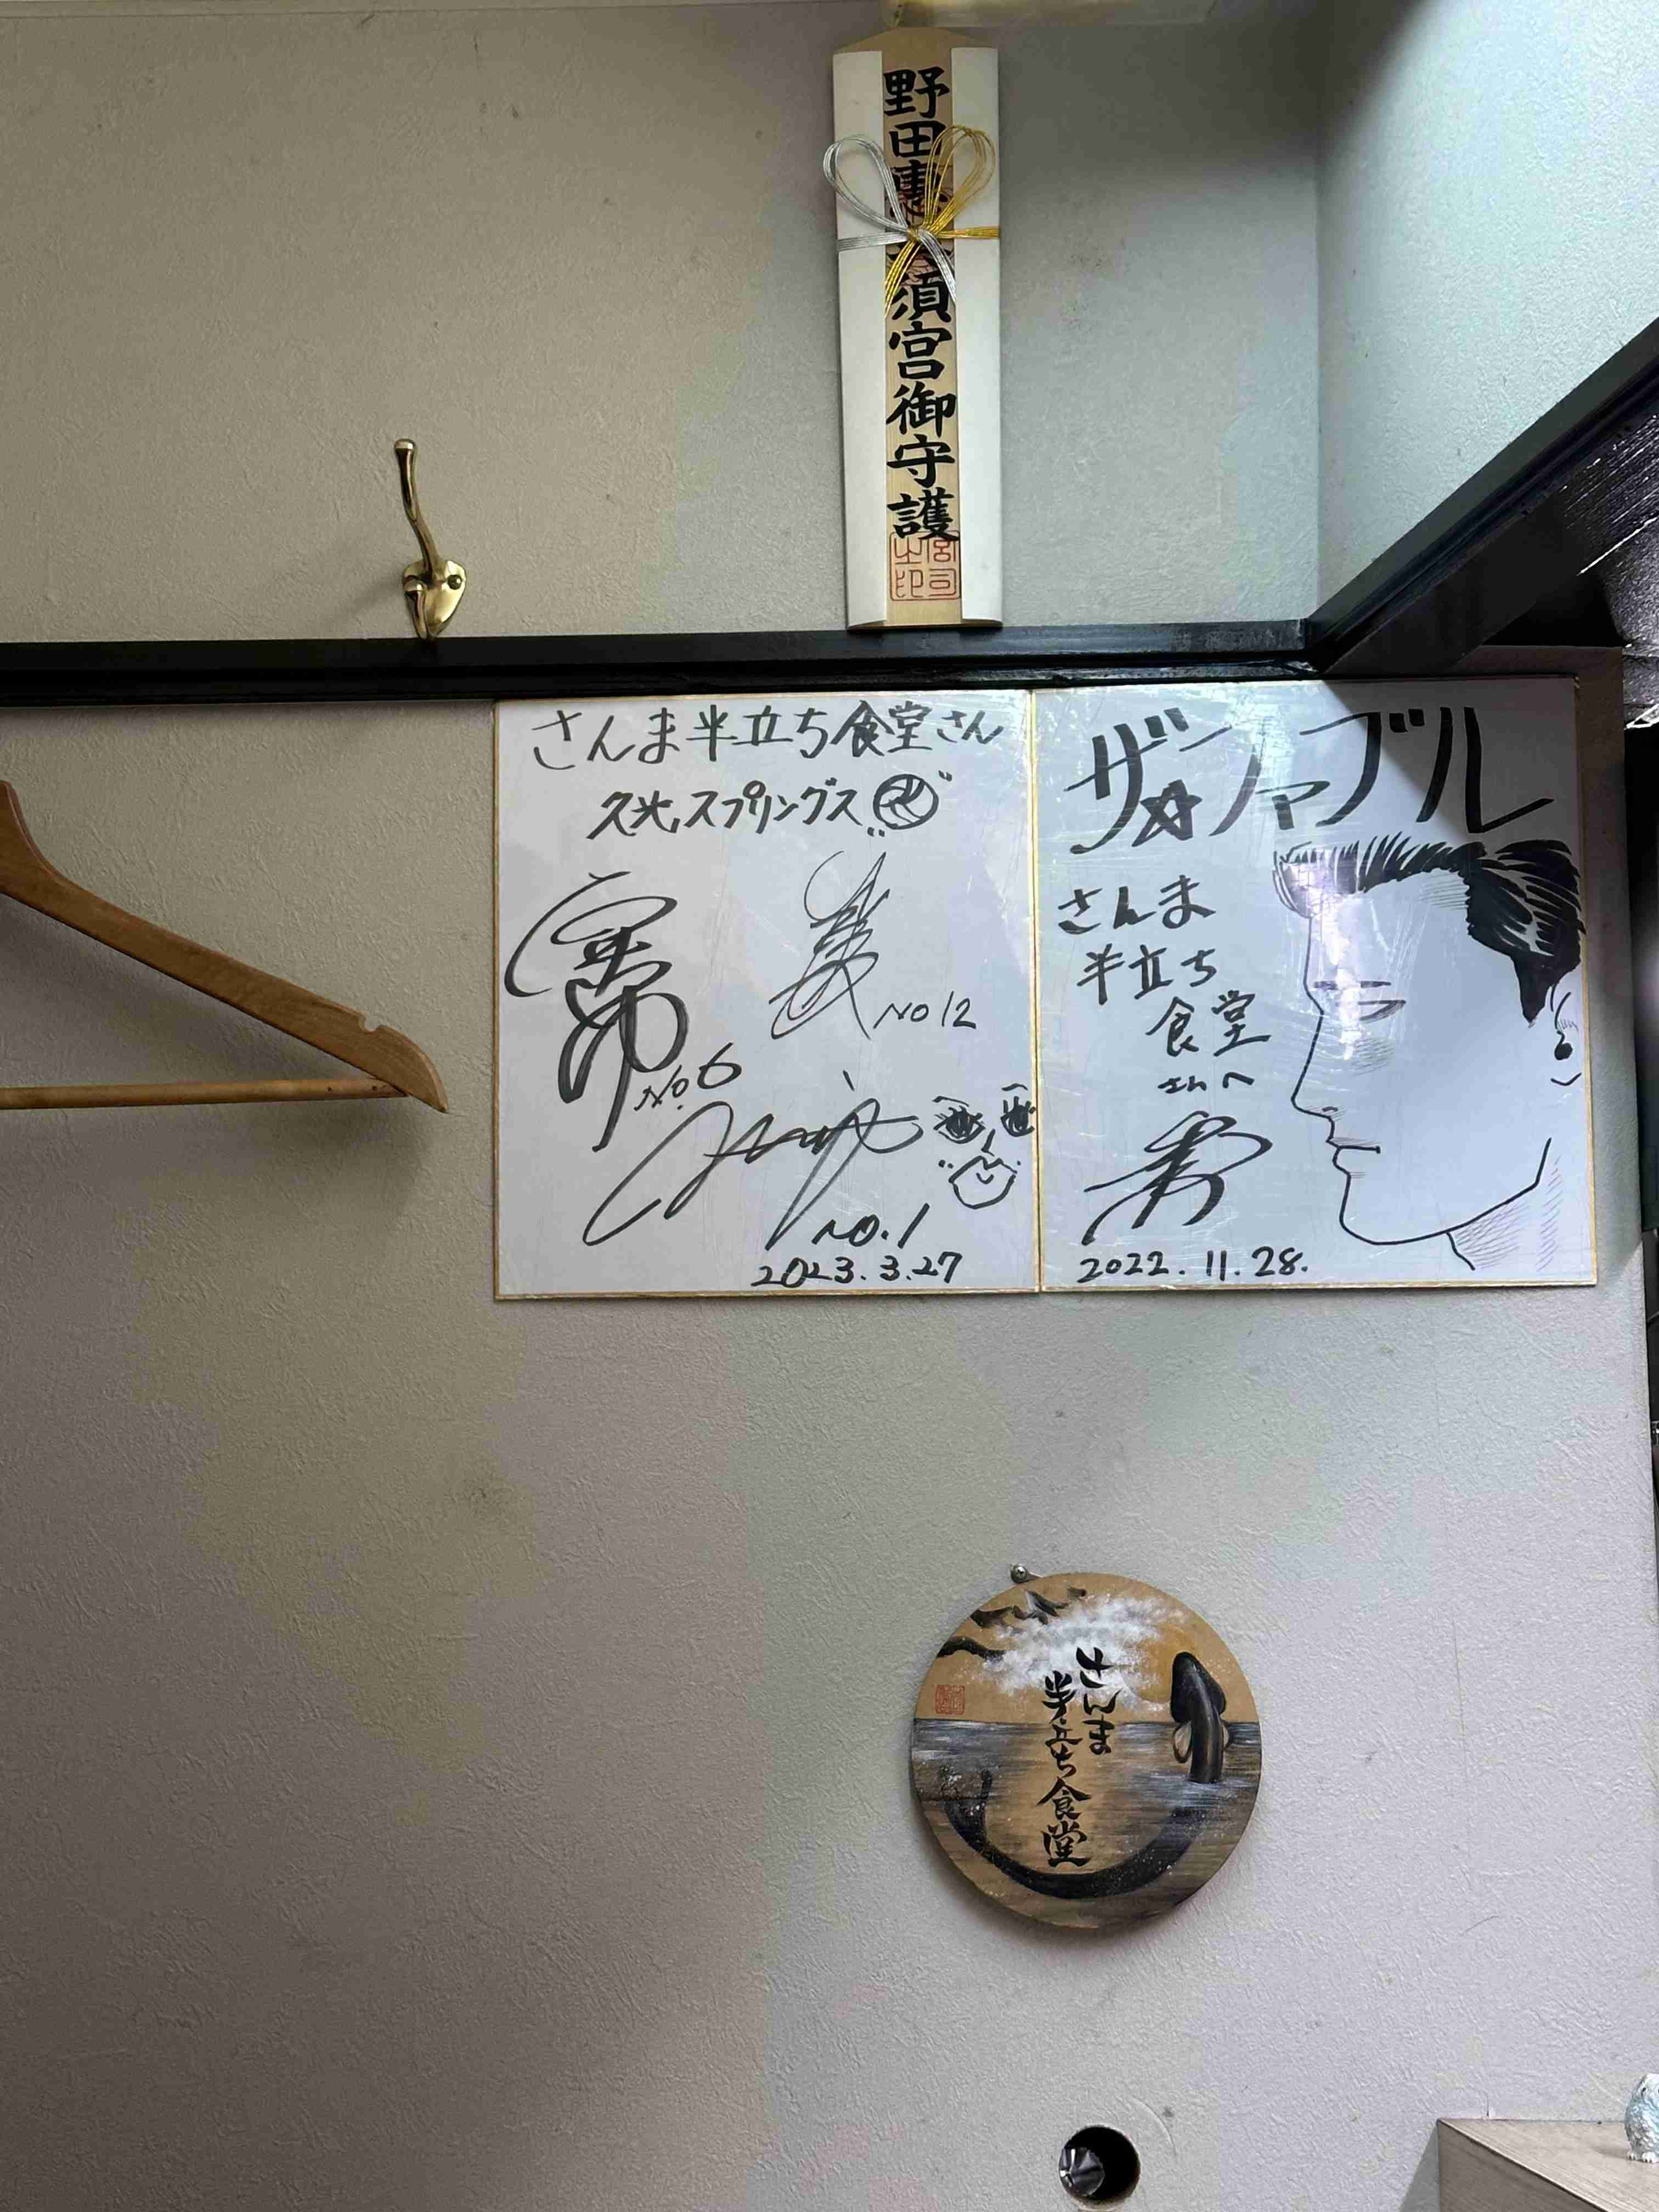 野田恵美須宮御守護
宮司之印
さんま半立ち食堂さん
久光スプリングス
No.6
No12
No.1
2023.3.27
ザ☆シャブル
さんま
半立ち
食堂
さんへ
2022.11.28.
さんま
半立ち食堂